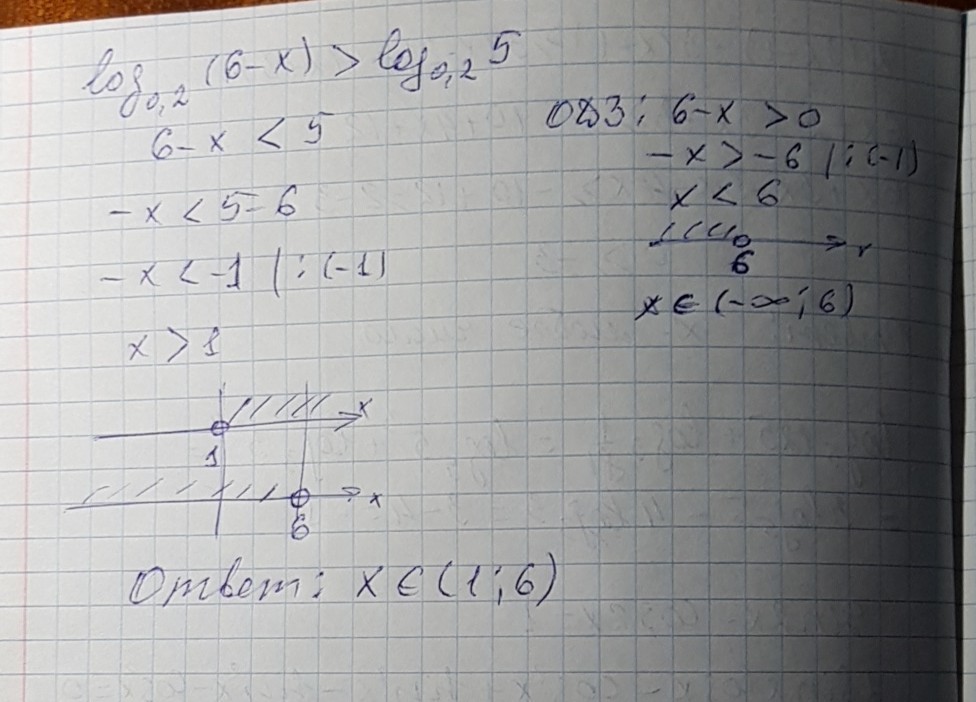 log₀,₂ (6-x) > log₀,₂ 5
6-x < 5
-x < 5-6
-x < -1 | : (-1)
x > 1
ОДЗ: 6-x > 0
-x > -6 | : (-1)
x < 6
6 x
x ∈ (-∞; 6)
1 x
6 x
Ответ: x ∈ (1; 6)